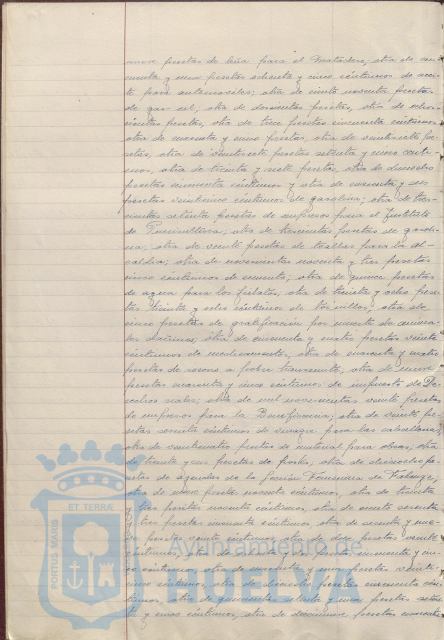 nueve pesetas de leña para el Matadero, otra de
cuenta y una pesetas ochenta y cinco céntimos de acei-
te para automóviles; otra de ciento noventa pesetas
de gas-oil, otra de doscientas pesetas, otra de ocho-
cientas pesetas, otra de trece pesetas cincuenta céntimos,
otra de cuarenta y una pesetas, otra de veintisiete pe-
setas, otra de veintisiete pesetas setenta y cinco cénti-
mos, otra de treinta y siete pesetas, otra de dieciocho
pesetas cuarenta céntimos y otra de cuarenta y seis
pesetas veinticinco céntimos de gasolina; otra de tres-
cientas setenta pesetas de impresos para el Instituto
de Puericultura; otra de trescientas pesetas de gasoli-
na; otra de veinte pesetas de toallas para la Al-
caldía; otra de novecientas noventa y tres pesetas
cinco céntimos de cemento; otra de quince pesetas
de agua para los fielatos, otra de treinta y ocho pese-
tas treinta y ocho céntimos de ladrillos; otra de
cinco pesetas de gratificación por muerte de anima-
les dañinos; otra de cincuenta y cuatro pesetas veinte
céntimos de medicamentos, otra de cuarenta y cuatro
pesetas de socorro a pobre transeunte, otra de nueve
pesetas cuarenta y cinco céntimos de impuesto de De-
rechos reales; otra de mil novecientas veinte pesetas
de impresos para la Beneficencia; otra de veinte pe-
setas noventa céntimos de vinagre para las caballerías,
otra de veinticuatro pesetas de material para obras, otra
de treinta y seis pesetas de portes, otra de diecisiete pe-
setas de
otra de nueve pesetas noventa céntimos, otra de treinta
y tres pesetas noventa céntimos, otra de
tres pesetas cincuenta céntimos, otra de
pesetas noventa céntimos, otra de doce pesetas veinte
céntimos, otra de
co céntimos, otra de cincuenta y una pesetas veinti-
cinco céntimos, otra de dieciocho pesetas cuarenta cén-
timos, otra de quinientas treinta y una pesetas seten-
ta y cinco céntimos, otra de doscientas pesetas cincuenta
PORTUS MARIS
ET TERRÆ
Ayuntamiento de
HUELVA